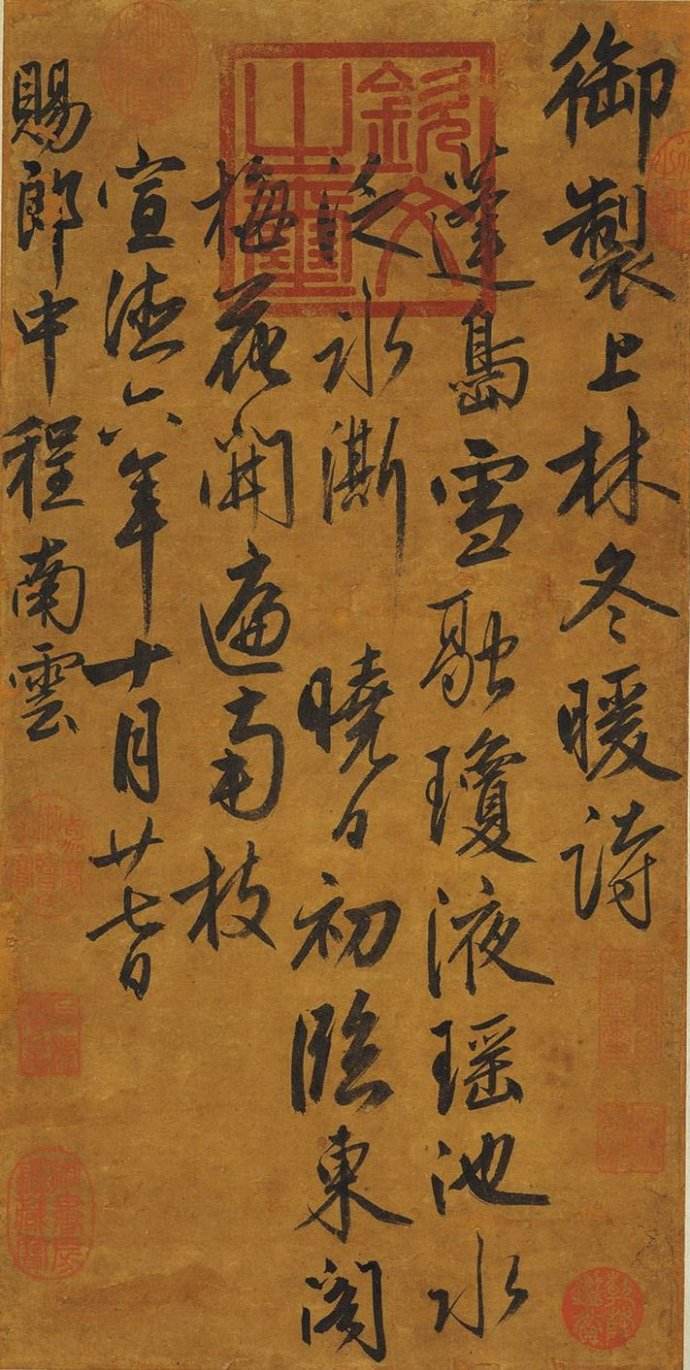 御製上林冬暖詩
蓬島雪融瓊液瑶池水
泛氷澌 曉日初臨東閣
梅花開遍南枝
宣德六年十月廿七日
賜郎中程南雲
欽文
之璽